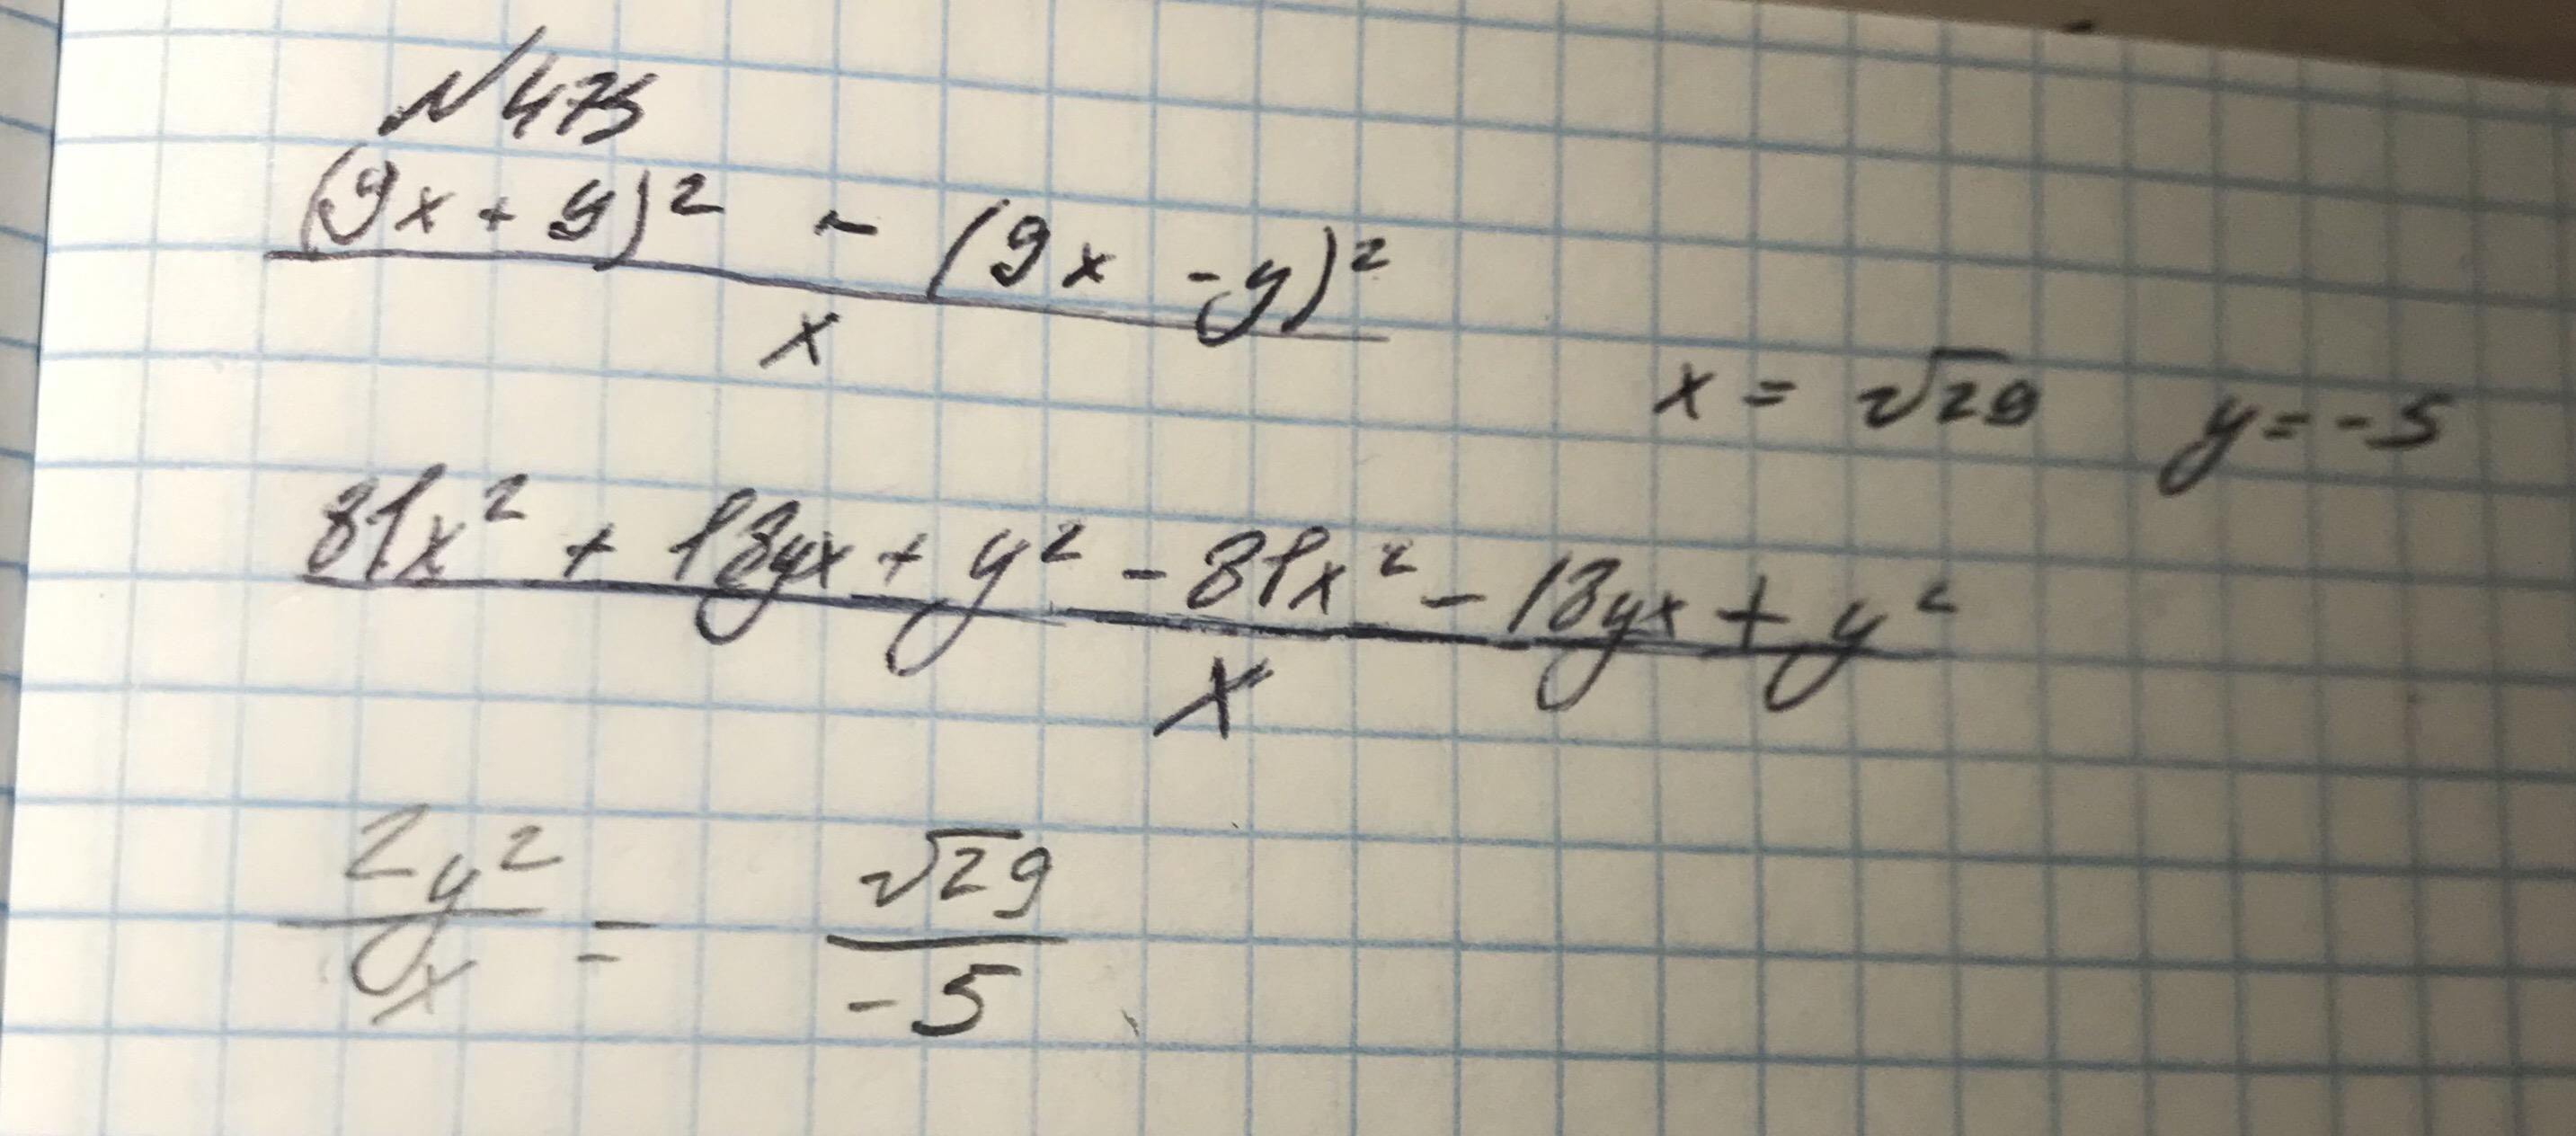 №475
((9x + y)² - (9x - y)²) / x
x = √29 y = -5
(81x² + 18yx + y² - 81x² - 18yx + y²) / x
2y² / x = √29 / -5